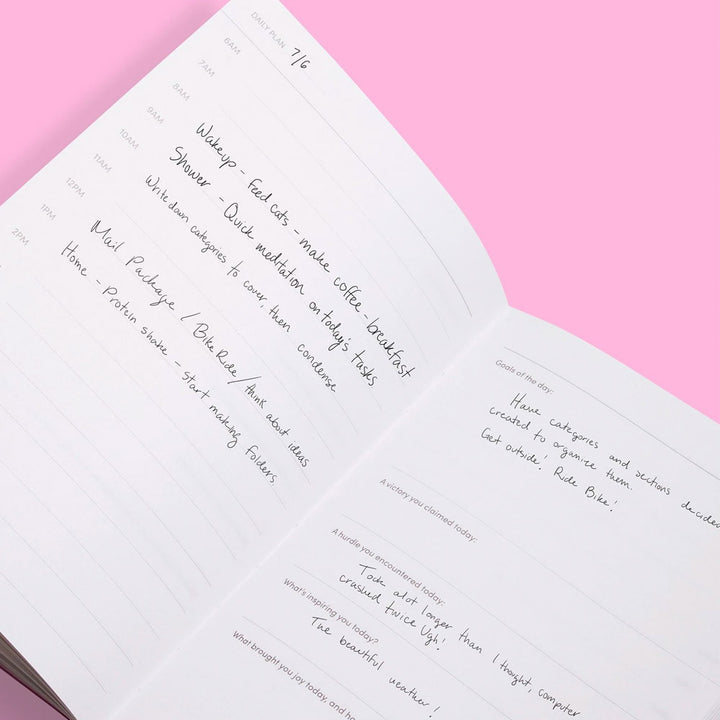 DAILY PLAN 7/6
6AM
7AM
8AM
9AM
Wakeup - feed cats - make coffee - breakfast
10AM
Shower - Quick meditation on today's tasks
11AM
Write down categories to cover, then condense
12PM
1PM
Mail Package / Bike Ride / think about ideas
2PM
Home - Protein shake - start making folders
Goals of the day:
Have categories and sections decided
created to organize them.
Get outside! Ride Bike!
A victory you claimed today:
A hurdle you encountered today:
Took alot longer than I thought, computer
crashed twice Ugh!
What's inspiring you today?
The beautiful weather!
What brought you joy today, and